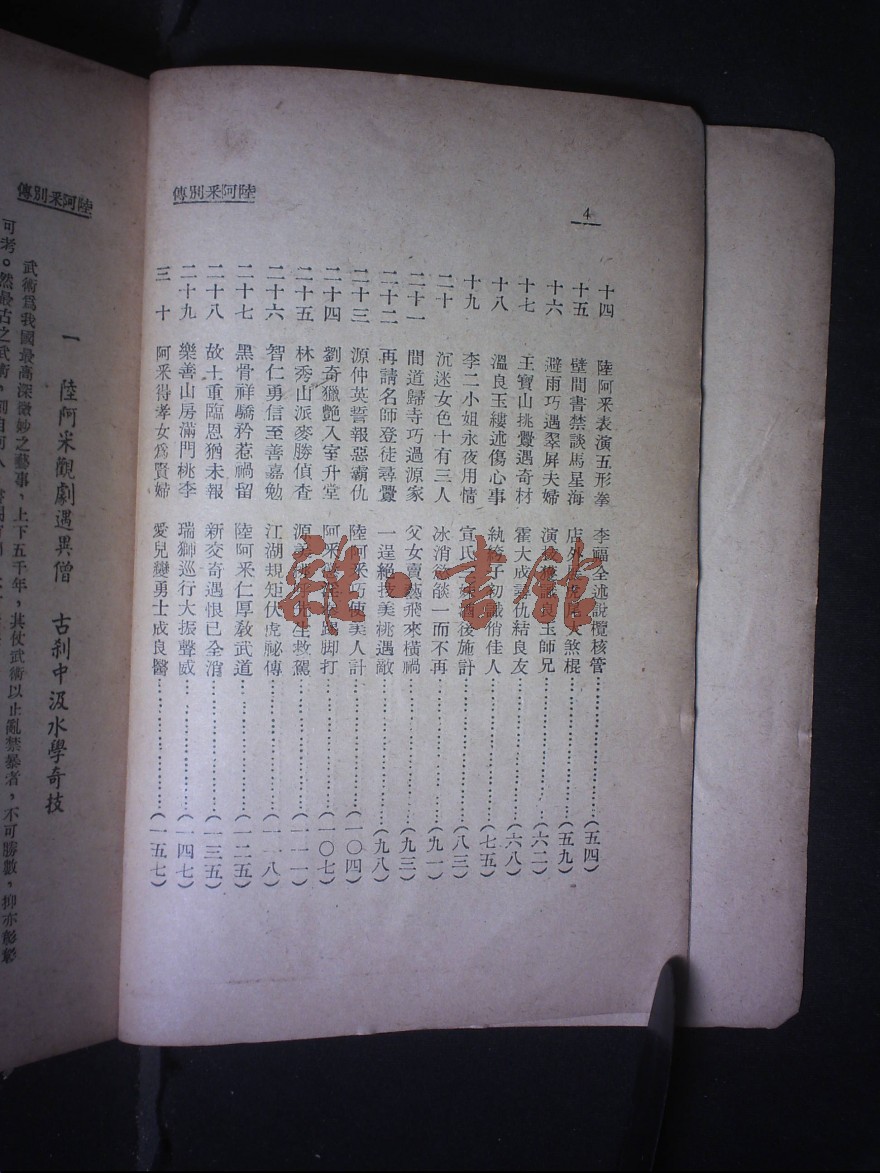 陸阿釆別傳
4
十四 陸阿釆表演五形拳 李福全述說欖核管………………(五四)
十五 壁間書禁談馬星海 店外 煞棍………………(五九)
十六 避雨巧遇翠屏夫婦 演技 良玉師兄………………(六二)
十七 王寶山挑釁遇奇材 霍大成 仇結良友………………(六八)
十八 溫良玉縷述傷心事 紈袴子初戲俏佳人………………(七五)
十九 李二小姐永夜用情 宣氏 酒後施計………………(八三)
二十 沉迷女色十有三人 冰消 燄一而不再………………(九一)
二十一 間道歸寺巧過源家 父女賣藝飛來橫禍………………(九三)
二十二 再請名師登徒尋釁 一逞絕技美桃遇敵………………(九八)
二十三 源仲英誓報惡霸仇 陸阿釆巧使美人計………………(一〇四)
二十四 劉奇獵艷入室升堂 阿釆 踢脚打………………(一〇七)
二十五 林秀山派麥勝偵查 源美 生救駕………………(一一一)
二十六 智仁勇信至善嘉勉 江湖規矩伏虎祕傳………………(一一八)
二十七 黑骨祥驕矜惹禍留 陸阿釆仁厚敎武道………………(一二五)
二十八 故土重臨恩猶未報 新交奇遇恨已全消………………(一三五)
二十九 樂善山房滿門桃李 瑞獅巡行大振聲威………………(一四七)
三十 阿釆得孝女爲賢婦 愛兒變勇士成良醫………………(一五七)
雜·書館
陸阿釆別傳
一 陸阿釆觀劇遇異僧 古刹中汲水學奇技
武術爲我國最高深微妙之藝事，上下五千年，其仗武術以止亂禁暴者，不可勝數，抑亦彰彰
可考。然最古之武術，